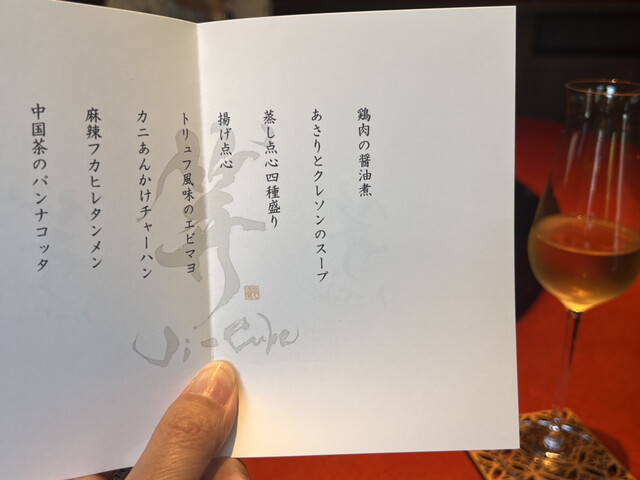 鶏肉の醤油煮
あさりとクレソンのスープ
蒸し点心四種盛り
揚げ点心
トリュフ風味のエビマヨ
カニあんかけチャーハン
麻辣フカヒレタンメン
中国茶のパンナコッタ
Ji-Cube